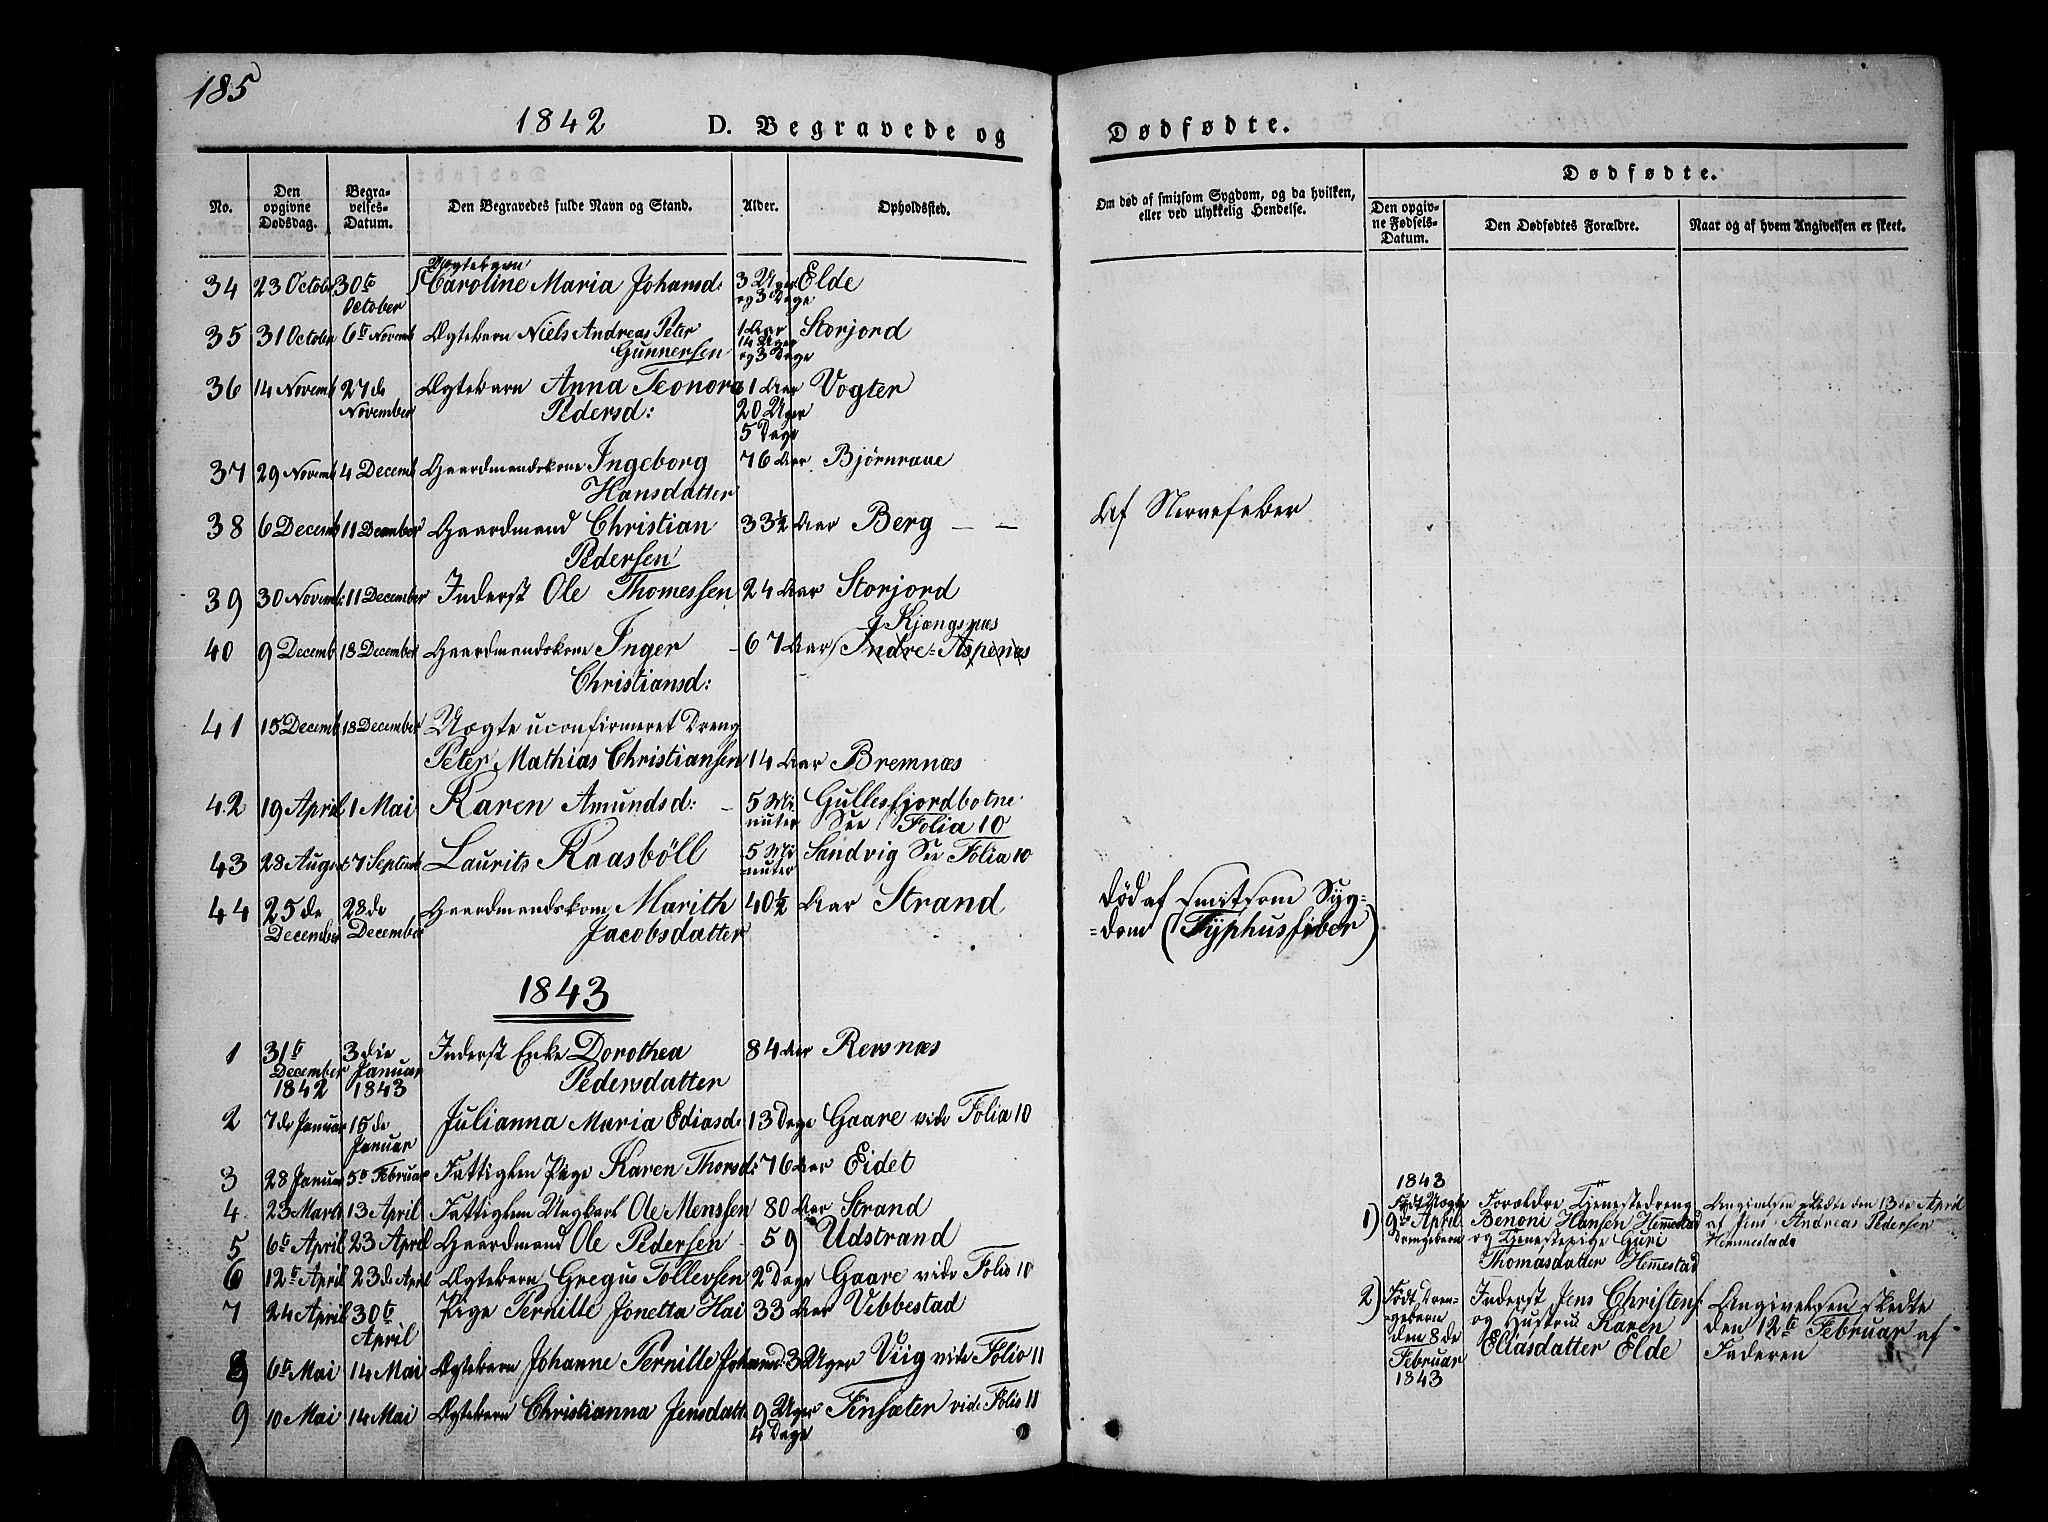 185
1842 D. Begravede og Dødfødte.
Dødfødte.
No.
Den opgivne Dødsdag.
Begravelses-Datum.
Den Begravedes fulde Navn og Stand.
Alder.
Opholdssted.
Om død af smitsom Sygdom, og da hvilken, eller ved ulykkelig Hendelse.
Den opgivne Fødsels-Datum.
Den Dødfødtes Forældre.
Naar og af hvem Angivelsen er skeet.
Ægtebarn
34 23 October 30te October Caroline Maria Johansd: 3 Uger og 3 Dage Elde
35 31 October 6te Novemb Ægtebarn Niels Andreas Peter Gunnersen 1 Aar 14 Uger og 3 Dage Storjord
36 14 Novemb 27de November Ægtebarn Anna Leonora Pedersd: 1 Aar 20 Uger 5 Dage Vogter
37 29 Novemb 4 Decemb Gaardmandskone Ingeborg Hansdatter 76 Aar Bjørnraae
38 6 Decemb 11 December Gaardmand Christian Pedersen 33½ Aar Berg — — Af Nervefeber
39 30 Novemb: 11 December Inderst Ole Thomessen 24 Aar Storjord
40 9 Decemb 18 December Gaardmandskone Inger Christiansd: 67 Aar Kjengsnæs Indre-Aspenæs
41 15 Decemb 18 December Uægte uconfirmeret Dreng
Peter Mathias Christiansen 14 Aar Bremnæs
42 19 April 1 Mai Karen Amundsd: — 5 Minuter Gullesfjordbotne See Folia 10
43 28 August 7 Septemb Laurits Kaasböll 5 Minuter Sandvig See Folia 10
44 25de December 28de December Gaardmandskone Marith Jacobsdatter 40½ Aar Strand død af smitsom Sygdom (Typhusfeber)
1843
1 31te December 1842 3die Januar 1843 Inderst Enke Dorothea Pedersdatter 84 Aar Revsnæs
2 7de Januar 15de Januar Julianna Maria Ediasd: 13 Dage Gaare vide Folia 10
3 28 Januar 5te Februar Fattiglem Pige Karen Thorsd: 76 Aar Eidet
4 23 Marts 13 April Fattiglem Ungkarl Ole Menssen 80 Aar Strand
5 6te April 23 April Gaardmand Ole Pedersen 59 Udstrand
6 12te April 23de April Ægtebarn Gregus Tollevsen 2 Dage Gaare vide Folio 10
7 24 April 30te April Pige Pernille Jonetta Hai 33 Aar Vebbestad
8 6te Mai 14 Mai Ægtebarn Johanne Pernille Johansd: 3 Uger Viig vide Folio 11
9 10 Mai 14 Mai Ægtebarn Christianna Jensdatt: 9 Uger 4 Dage Finsæter vide Folio 11
1843
1) Født Uægte 9de April Drengebarn
Forældre Tjenestedreng Benoni Hansen Hemmestad og Tjenestepige Guri Thomasdatter Hemmestad
Angivelsen skedte den 13de April af Andreas Pedersen Hemmestad
2) Født Drengebarn den 8de Februar 1843
Inderst Jens Christens: og Hustrue Karen Eliasdatter Elde
Angivelsen skedte den 12te Februar af Faderen